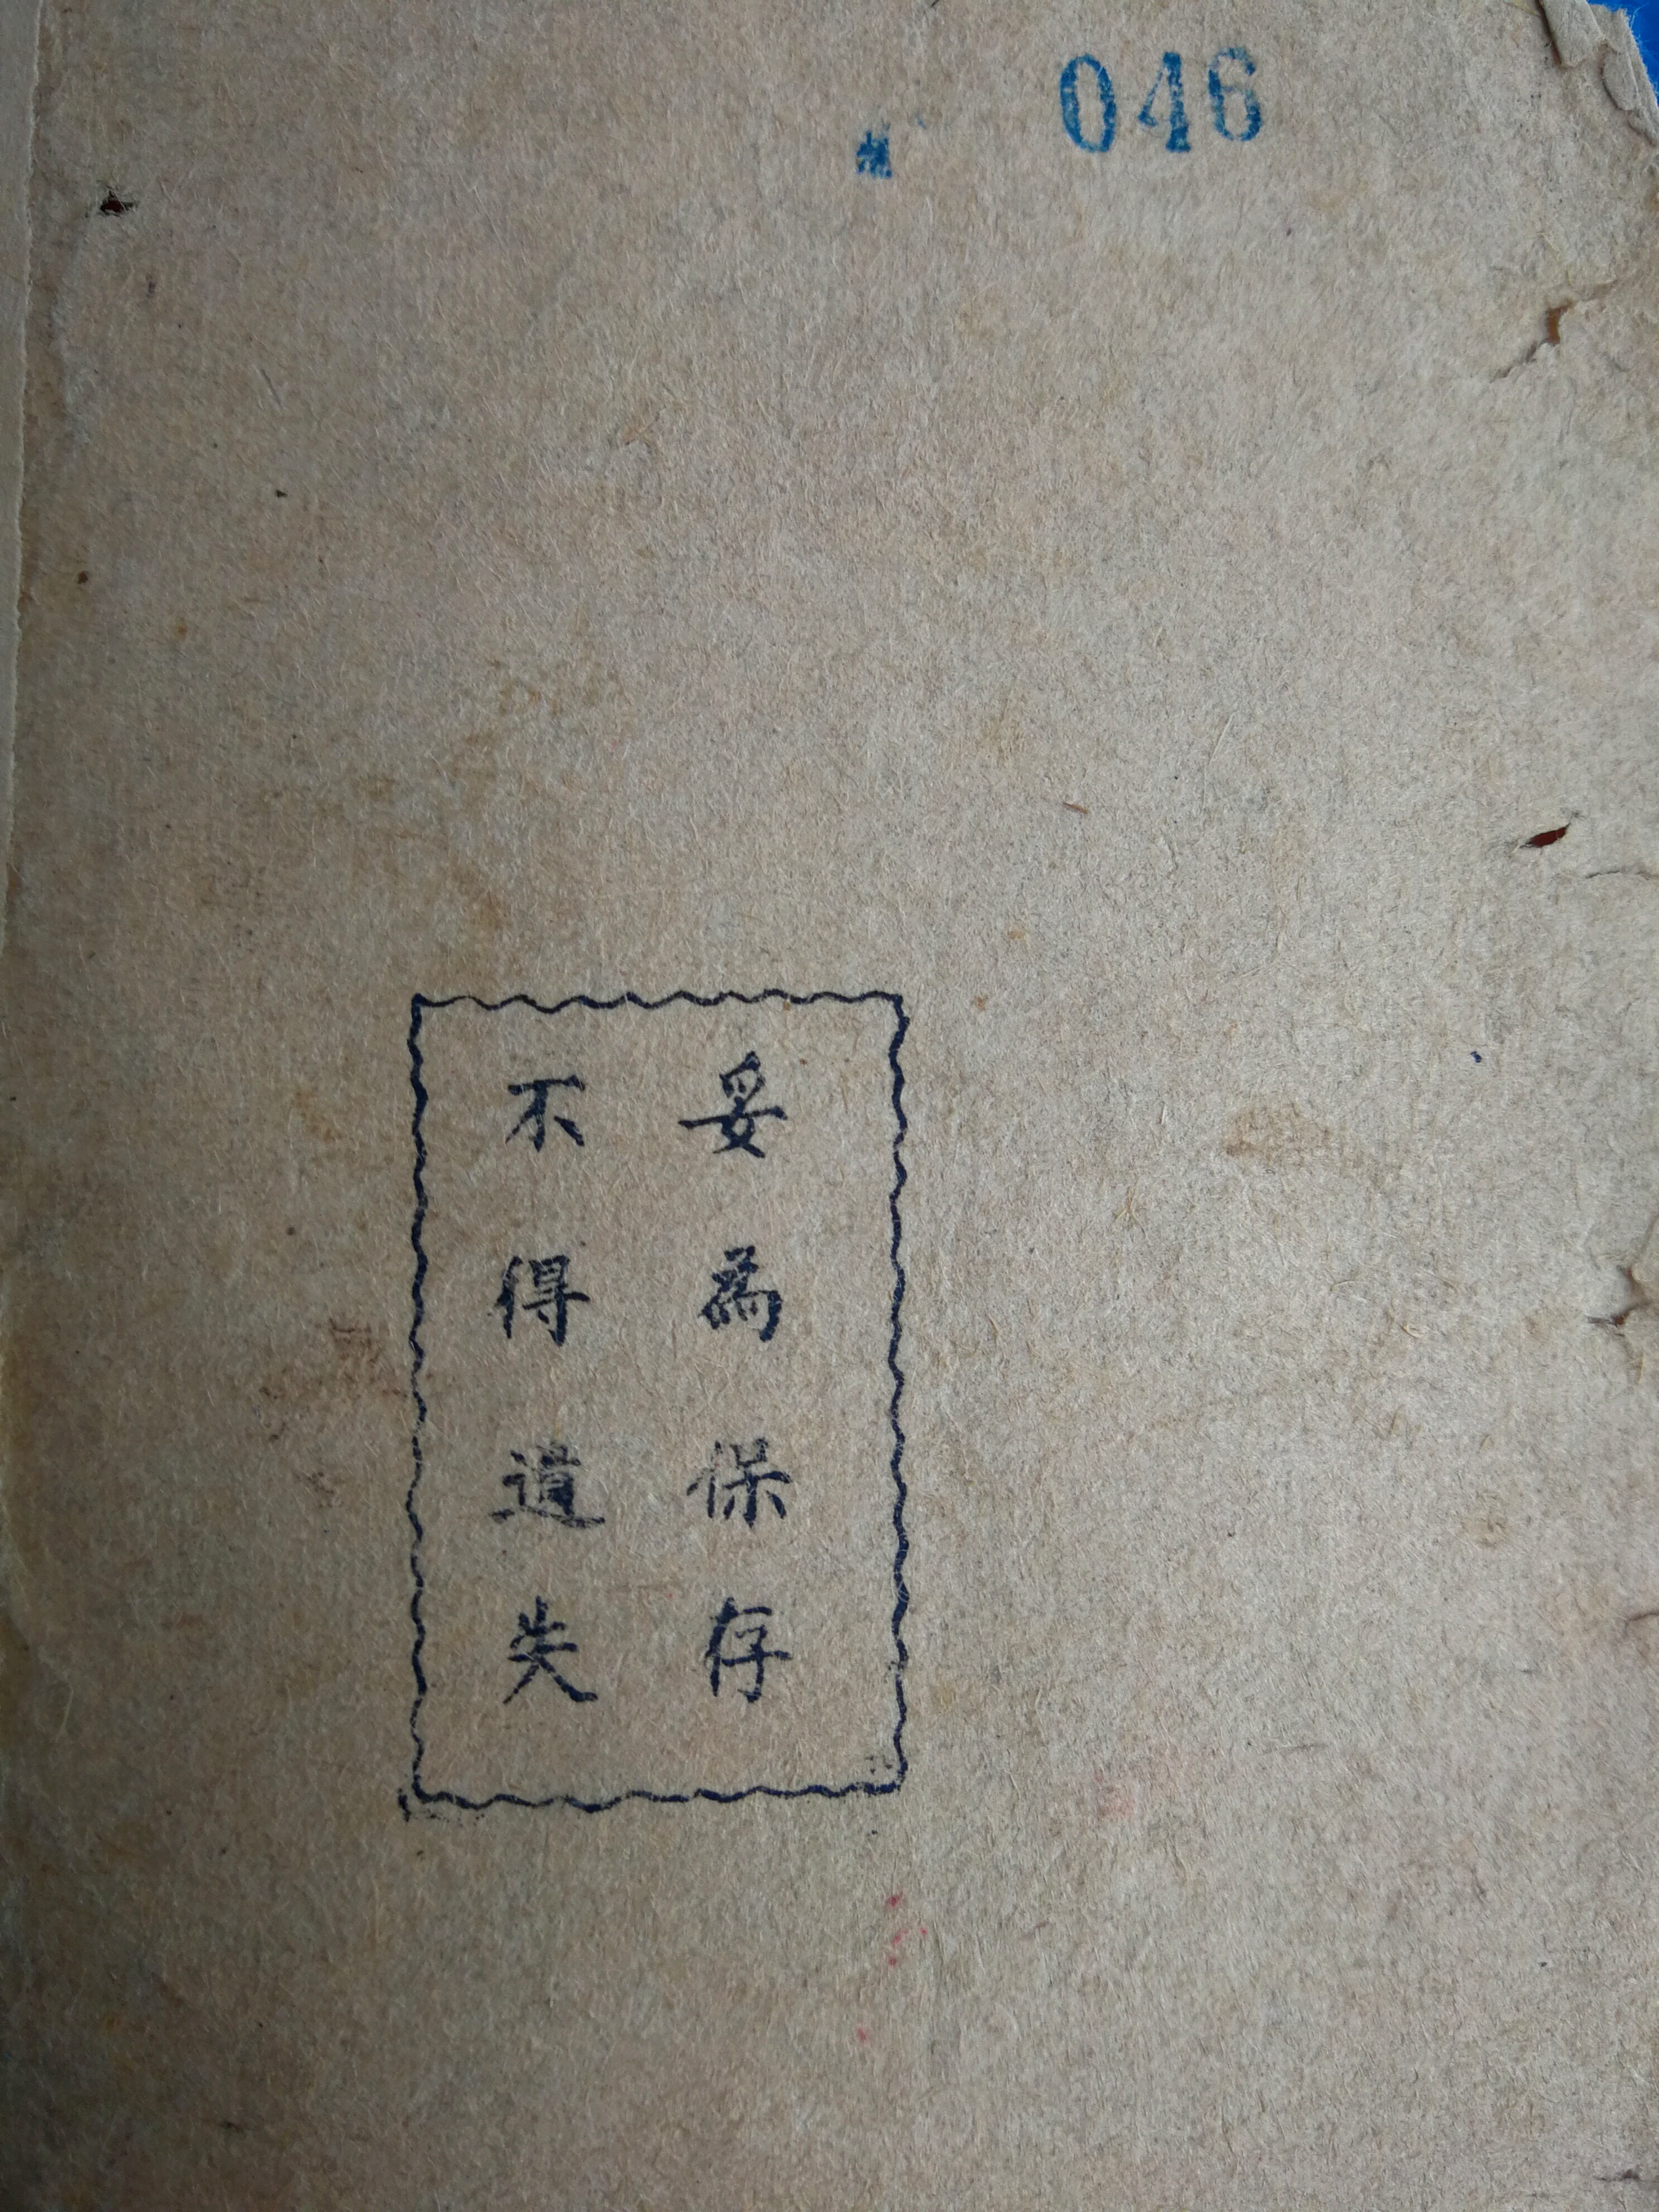 046
妥為保存
不得遺失